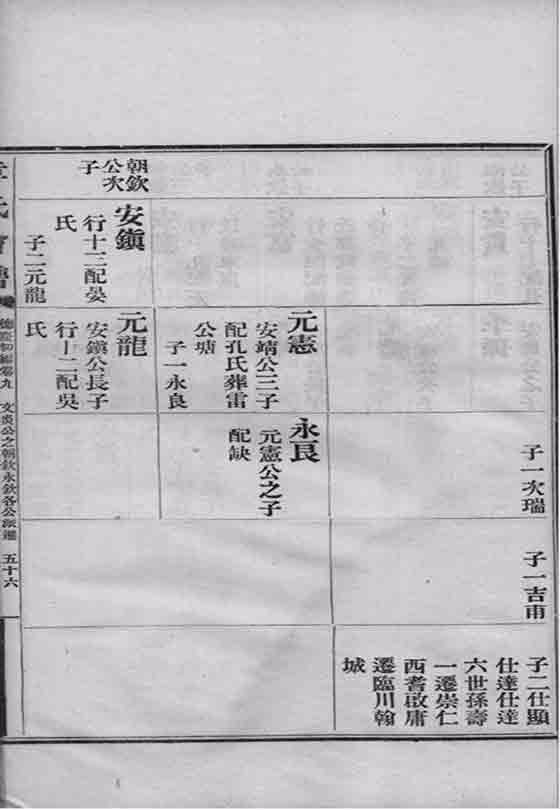 朝欽
公次
子
安鎮
行十三配晏
氏
子二元龍
元憲
安靖公三子
配孔氏葬雷
公塘
子一永良
元龍
安鎮公長子
行十二配吳
氏
子一次瑞
永良
元憲公之子
配缺
子一吉甫
子二仕顯
仕達仕達
六世孫壽
一遷崇仁
西耆啟庸
遷臨川翰
城
德慶初編卷九 文炎公之朝欽永欽各公派遷 五十六